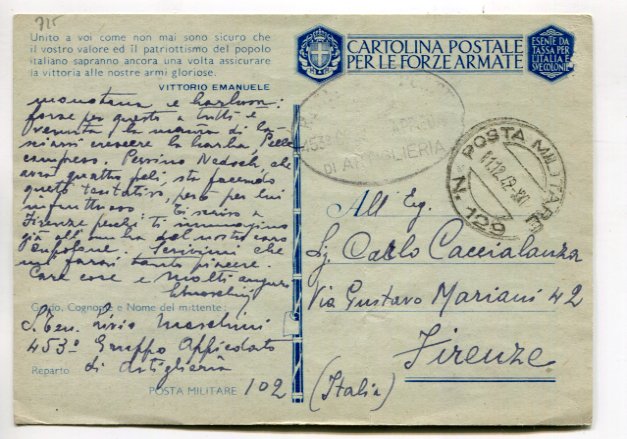 715
Unito a voi come non mai sono sicuro che
il vostro valore ed il patriottismo del popolo
italiano sapranno ancora una volta assicurare
la vittoria alle nostre armi gloriose.
VITTORIO EMANUELE
monotona e
forse per questo a tutti è
venuta la mania di la-
sciarsi crescere la barba. Pelle
compreso. Persino che
avrà quattro peli sta facendo
questo tentativo, però per lui
infruttuoso. Ti scrivo a
Firenze perché ti immagino
già all'ombra del nostro caro
cupolone. Scrivimi che
mi farai tanto piacere.
Care cose e molti auguri
Grado, Cognome e Nome del mittente:
S. Ten. Livio Maschini
453° Gruppo Appiedato
Reparto di Artiglieria
POSTA MILITARE 102
CARTOLINA POSTALE
PER LE FORZE ARMATE
ESENTE DA
TASSA PER
L'ITALIA E
SUE COLONIE
453°
DI ARTIGLIERIA
N. POSTA MILITARE 129
11.12.42
All' Eg.
Sig. Carlo Caccialanza
Via Gustavo Mariani 42
Firenze
(Italia)